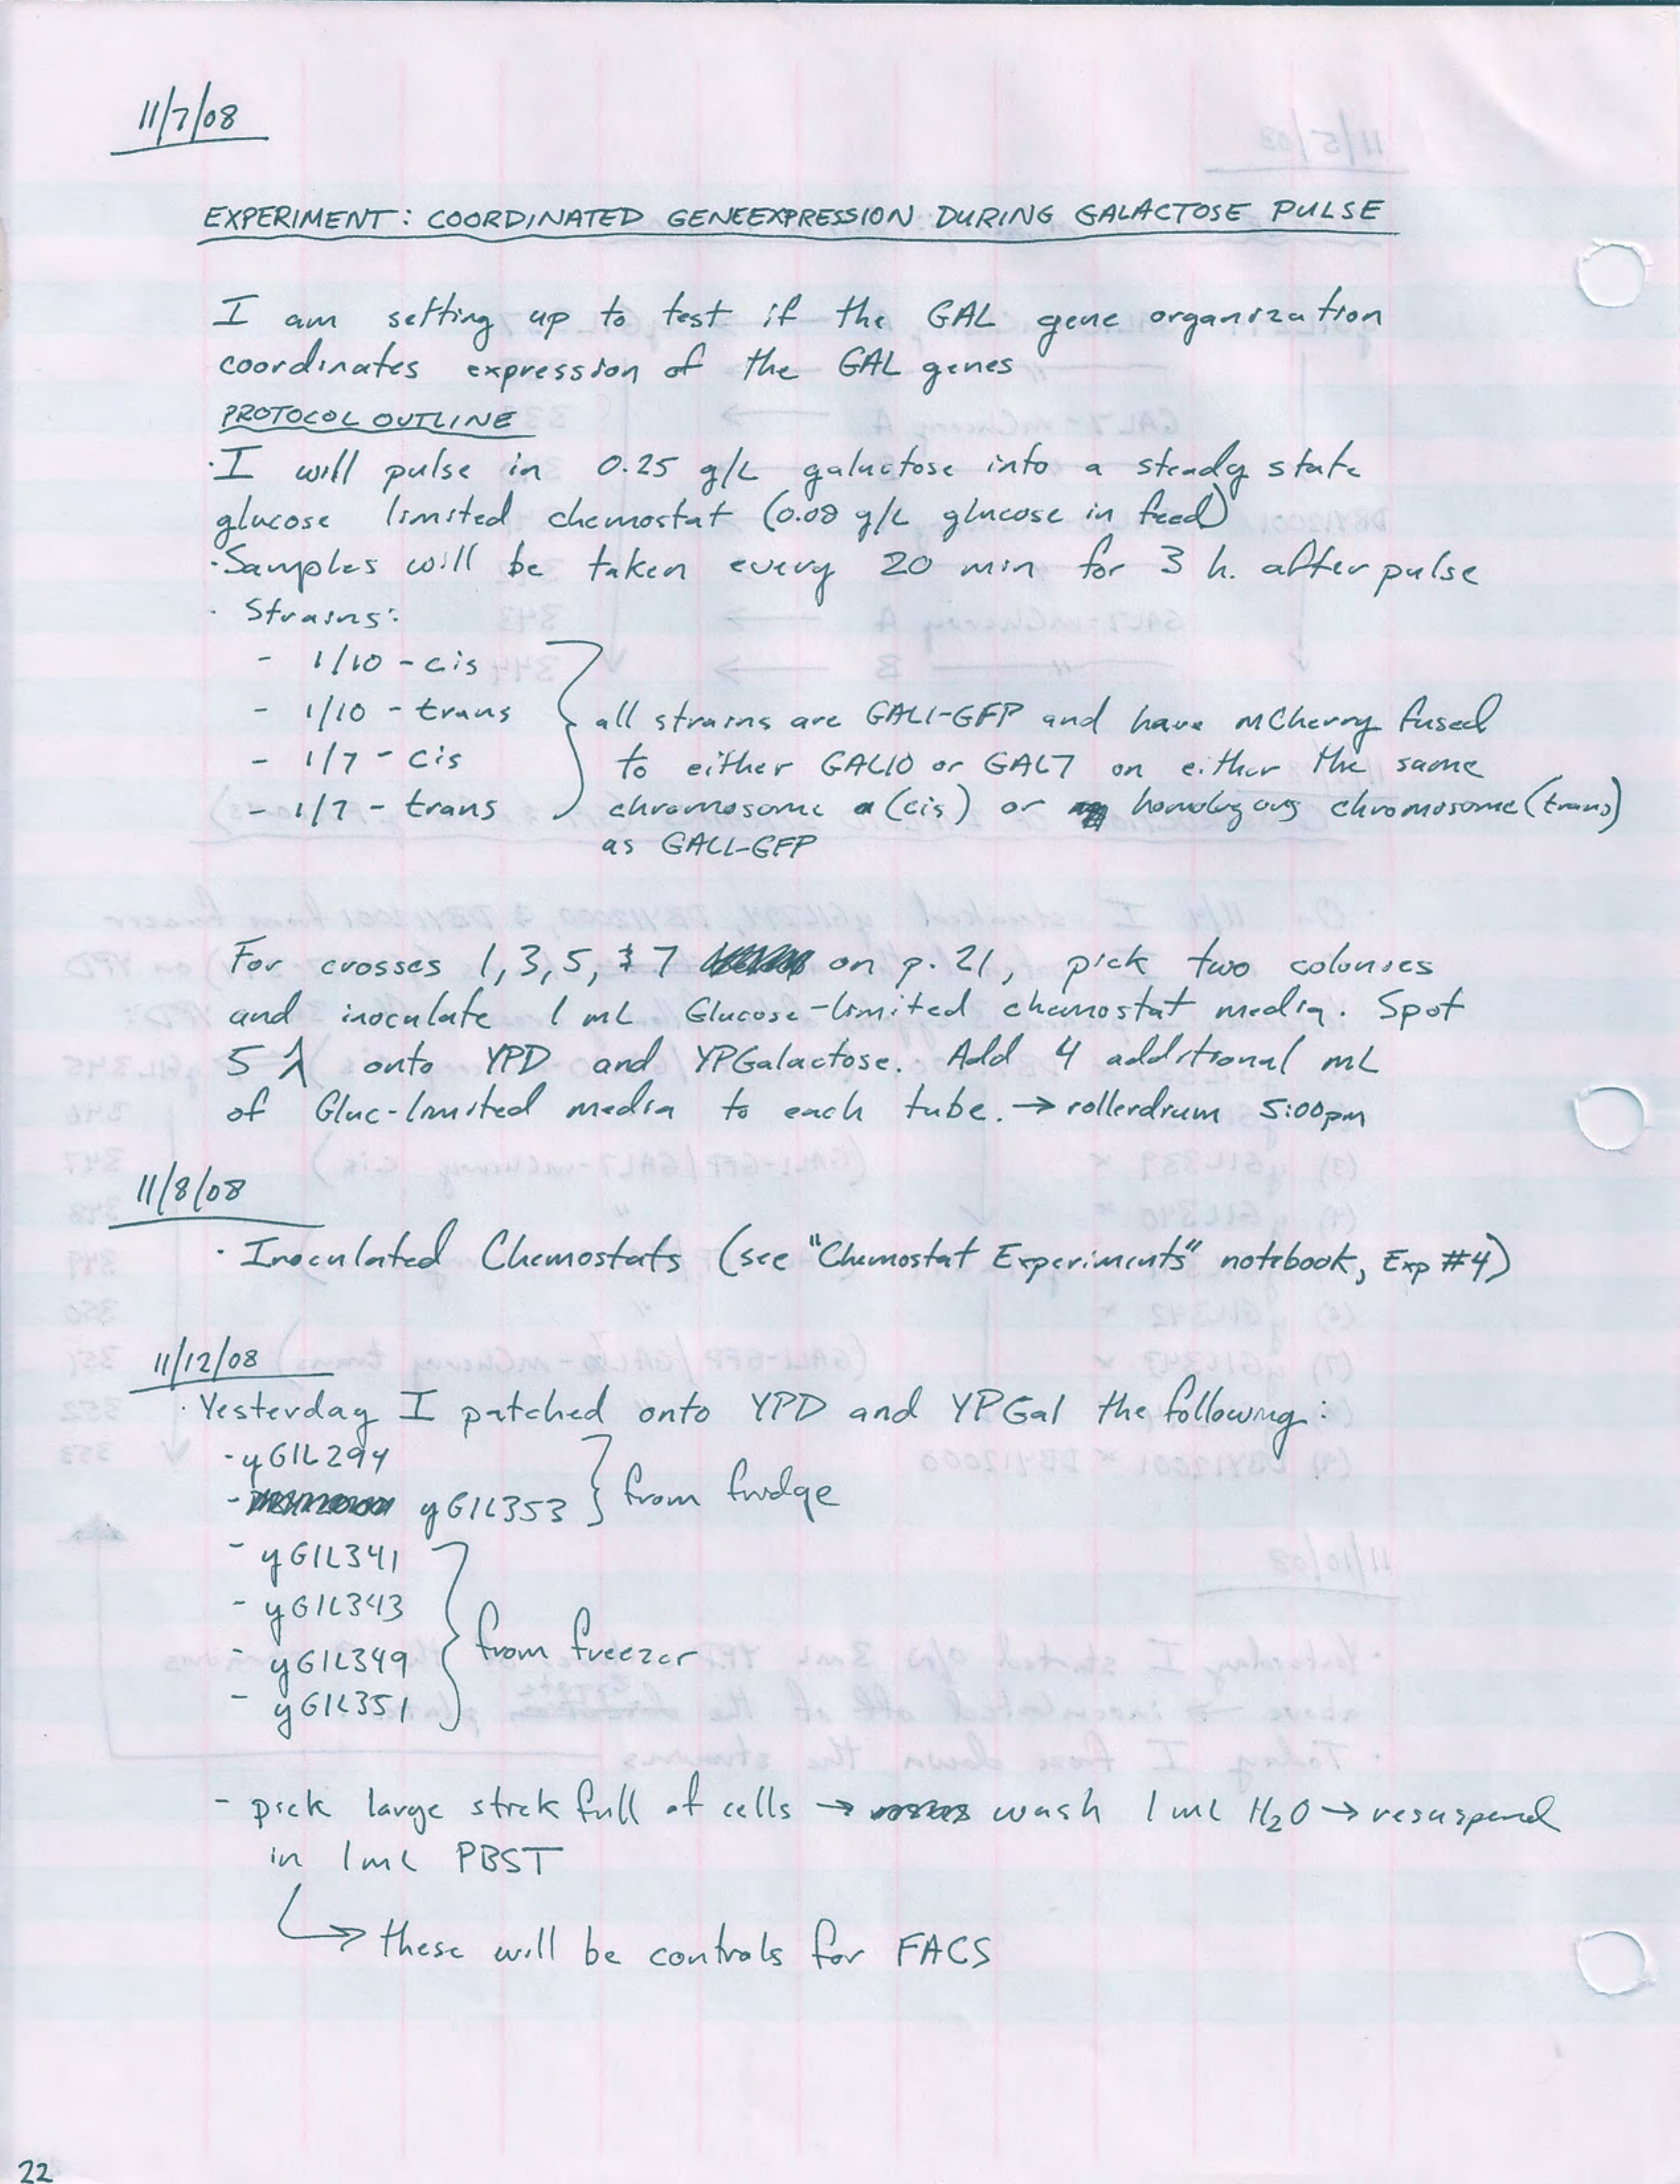 11/7/08
EXPERIMENT: COORDINATED GENEEXPRESSION DURING GALACTOSE PULSE
I am setting up to test if the GAL gene organization
coordinates expression of the GAL genes
PROTOCOL OUTLINE
· I will pulse in 0.25 g/L galactose into a steady state
glucose limited chemostat (0.08 g/L glucose in feed)
· Samples will be taken every 20 min for 3 h. after pulse
· Strains:
- 1/10 - cis
- 1/10 - trans
- 1/7 - cis
- 1/7 - trans
all strains are GAL1-GFP and have mCherry fused
to either GAL10 or GAL7 on either the same
chromosome (cis) or homologous chromosome (trans)
as GAL1-GFP
For crosses 1, 3, 5, & 7 on p. 21, pick two colonies
and inoculate 1 mL Glucose-limited chemostat media. Spot
5 λ onto YPD and YPGalactose. Add 4 additional mL
of Gluc-limited media to each tube. → rollerdrum 5:00pm
11/8/08
· Inoculated Chemostats (see "Chemostat Experiments" notebook, Exp #4)
11/12/08
· Yesterday I patched onto YPD and YPGal the following:
- yGIL294
- yGIL353
from fridge
- yGIL341
- yGIL343
- yGIL349
- yGIL351
from freezer
- pick large stick full of cells → wash 1 mL H₂O → resuspend
in 1 mL PBST
↳ these will be controls for FACS
22